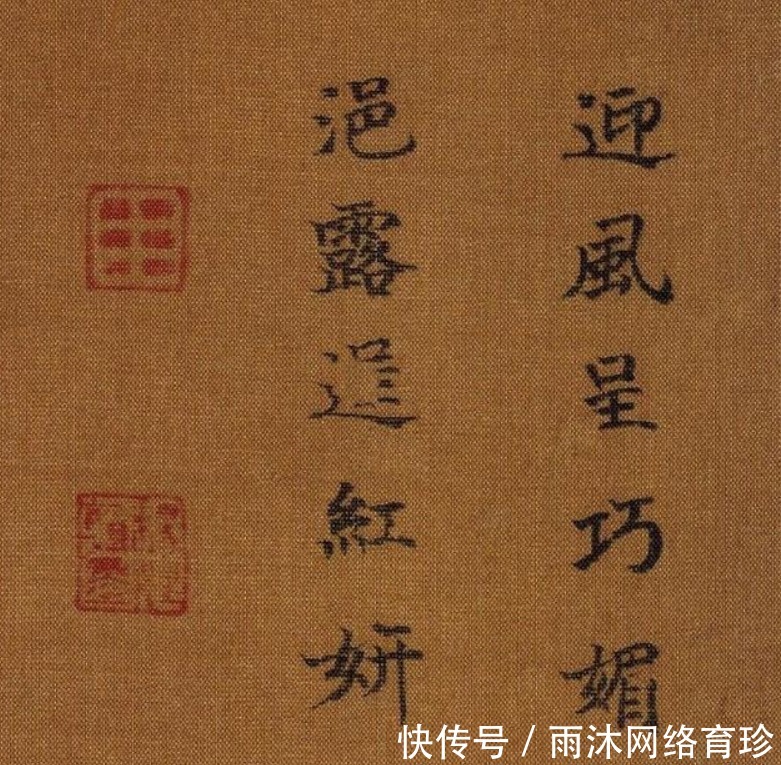 迎風呈巧媚
浥露逞紅妍
快传号 / 雨沐网络育珍